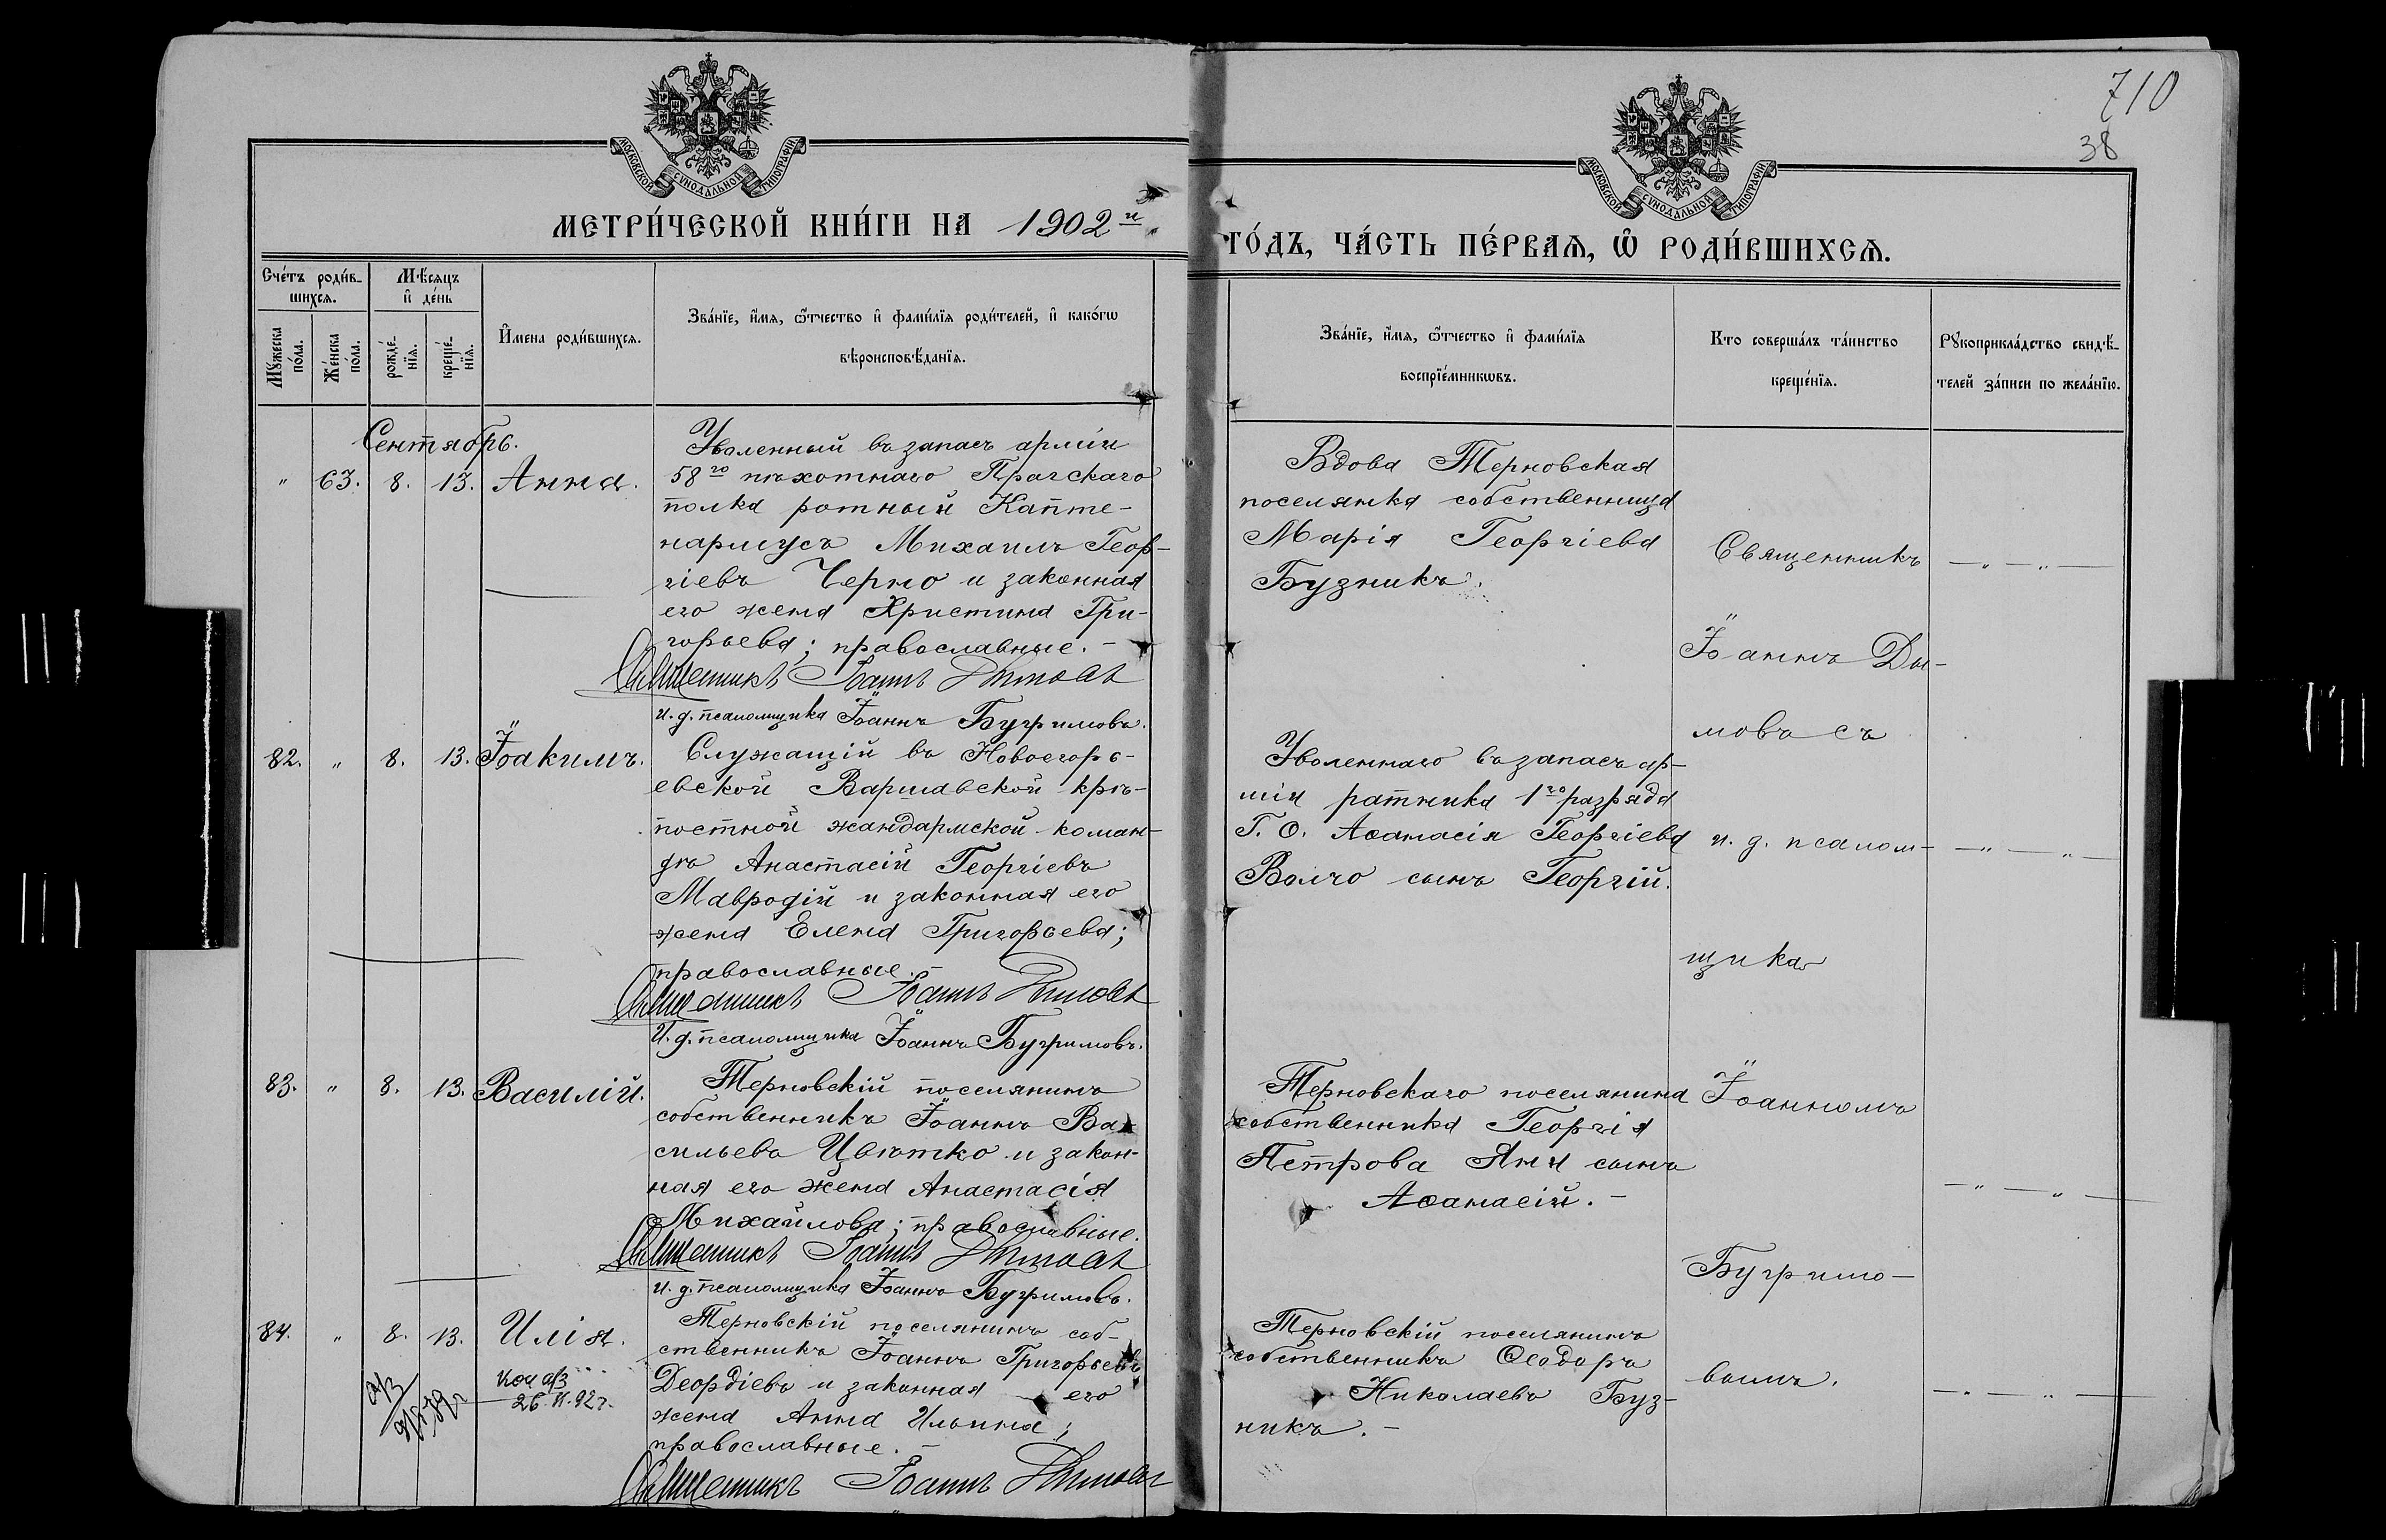 710
38
МОСКОВСКОЙ СѴНОДАЛЬНОЙ ТИПОГРАФІИ
МОСКОВСКОЙ СѴНОДАЛЬНОЙ ТИПОГРАФІИ
МЕТРИ́ЧЕСКОЙ КНИ́ГИ НА 1902й
ГО́ДЪ, ЧА́СТЬ ПЕ́РВАѦ, Ѡ҆ РОДИ́ВШИХСѦ.
Сче́тъ роди́в-
шихсѧ.
Мѣ́сѧцъ
и҆ де́нь
Мꙋ́жеска по́ла.
Же́нска по́ла.
рожде́-нїѧ.
креще́-нїѧ.
И҆мена роди́вшихсѧ.
Зва́нїе, и҆́мѧ, ѻ҆́тчество и҆ фами́лїѧ роди́телей, и҆ како́гѡ
вѣроисповѣ́данїѧ.
Зва́нїе, и҆́мѧ, ѻ҆́тчество и҆ фами́лїѧ
воспрїе́мникѡвъ.
Кто соверша́лъ та́инство
креще́нїѧ.
Рꙋкоприкла́дство свидѣ́-
телей за́писи по жела́нїю.
Сентябрь.
" 63. 8. 13. Анна.
Уволенный въ запасъ арміи
58го пѣхотнаго Прагскаго
полка ротный Каптe-
нармусъ Михаилъ Геор-
гіевъ Черно и законная
его жена Христина Гри-
горьева; православные. -
Священникъ Іоаннъ Дымовъ
и. д. псаломщика Іоаннъ Бугримовъ.
Вдова Терновская
поселянка собственница
Марія Георгіева
Бузникъ.
Священникъ
Іоаннъ Ды-
мовъ съ
и. д. псалом-
щика
Іоанномъ
Бугримо-
вымъ.
82. " 8. 13. Іоакимъ.
Служащій въ Новогеоргі-
евской Варшавской крѣ-
постной жандармской коман-
дѣ Анастасій Георгіевъ
Мавродій и законная его
жена Елена Григорьева;
православные. -
Священникъ Іоаннъ Дымовъ
И. д. псаломщика Іоаннъ Бугримовъ.
Уволеннаго въ запасъ ар-
міи ратника 1го разряда
Г. О. Аѳанасія Георгіева
Волчо сынъ Георгій.
83. " 8. 13. Василій.
Терновскій поселянинъ
собственникъ Іоаннъ Ва-
сильевъ Цвѣтко и закон-
ная его жена Анастасія
Михайлова; православные.
Священникъ Іоаннъ Дымовъ
и. д. псаломщика Іоаннъ Бугримовъ.
Терновскаго поселянина
собственника Георгія
Петрова Яни сынъ
Аѳанасій. -
84. " 8. 13. Илія.
Терновскій поселянинъ соб-
ственникъ Іоаннъ Григорьевъ
Деордіевъ и законная его
жена Анна Ильина;
православные. -
Священникъ Іоаннъ Дымовъ
Терновскій поселянинъ
собственникъ Ѳеодоръ
Николаевъ Буз-
никъ. -